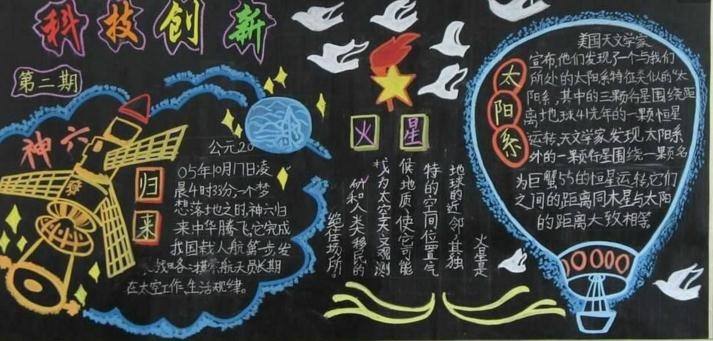 科技创新
第二期
神六
归来
公元20
05年10月17日凌
晨4时33分,一个梦
想落地之时,神六归
来中华腾飞,它完成
我国载人航 第一步,发
航天员长期
在太空工作,生活规律。
火星
火星是
地球的近邻,其独
特的空间位置,气
候,地质,使它可能
成为太空天文观测
和人类移民的
绝佳场所
太阳系
美国天文学家
宣布,他们发现了一个与我们
所处的太阳系特征类似的“太
阳系,其中的三颗行星围绕距
离地球41光年的一颗恒星
运转,天文学家发现,太阳系
外的一颗行星围绕一颗名
为巨蟹55的恒星运转,它们
之间的距离同木星与太阳
的距离大致相等